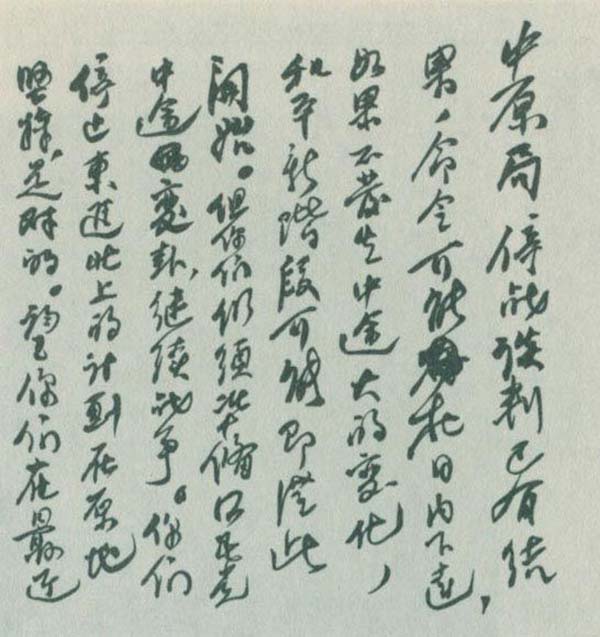 中原局停战谈判已有结
果，命令可能在日内下达，
如果不发生中途大的变化，
和平新阶段可能即从此
開始。但你们仍须准備
中途变卦，继续战争。你们
停止東進北上的计划在原地
坚持，是对的。望你们在最近